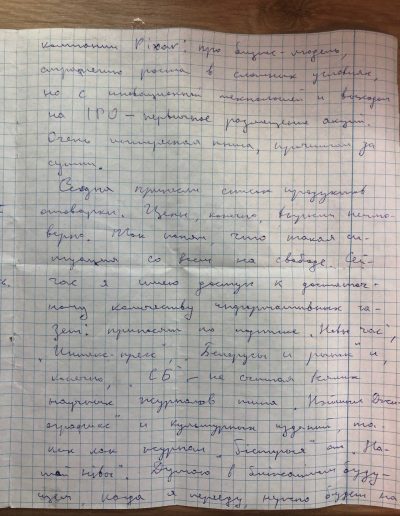 компании Pixar: про бизнес-модель,
стратегию роста в сложных условиях,
но с инновационной технологией и выходом
на IPO – первичное размещение акций.
Очень интересная книга, прочитал за
сутки.
Сегодня принесли список продуктов
отоварки. Цены, конечно, вкусили неимо-
верно. Так понял, что такая си-
туация со всем на свободе. Сей-
час я имею доступ к достаточ-
ному количеству информативных га-
зет: приносят по подписке „Новы час",
„Интекс-пресс", „Белорусы и рынок" и,
конечно, „СБ" – не считая всяких
научных журналов типа „Нэйшнл Джи-
ографикс" и культурных изданий, та-
ких как журнал „Гісторыя" от „На-
шай Нівы". Думаю в ближайшем буду-
щем, когда я перееду нужно будет на